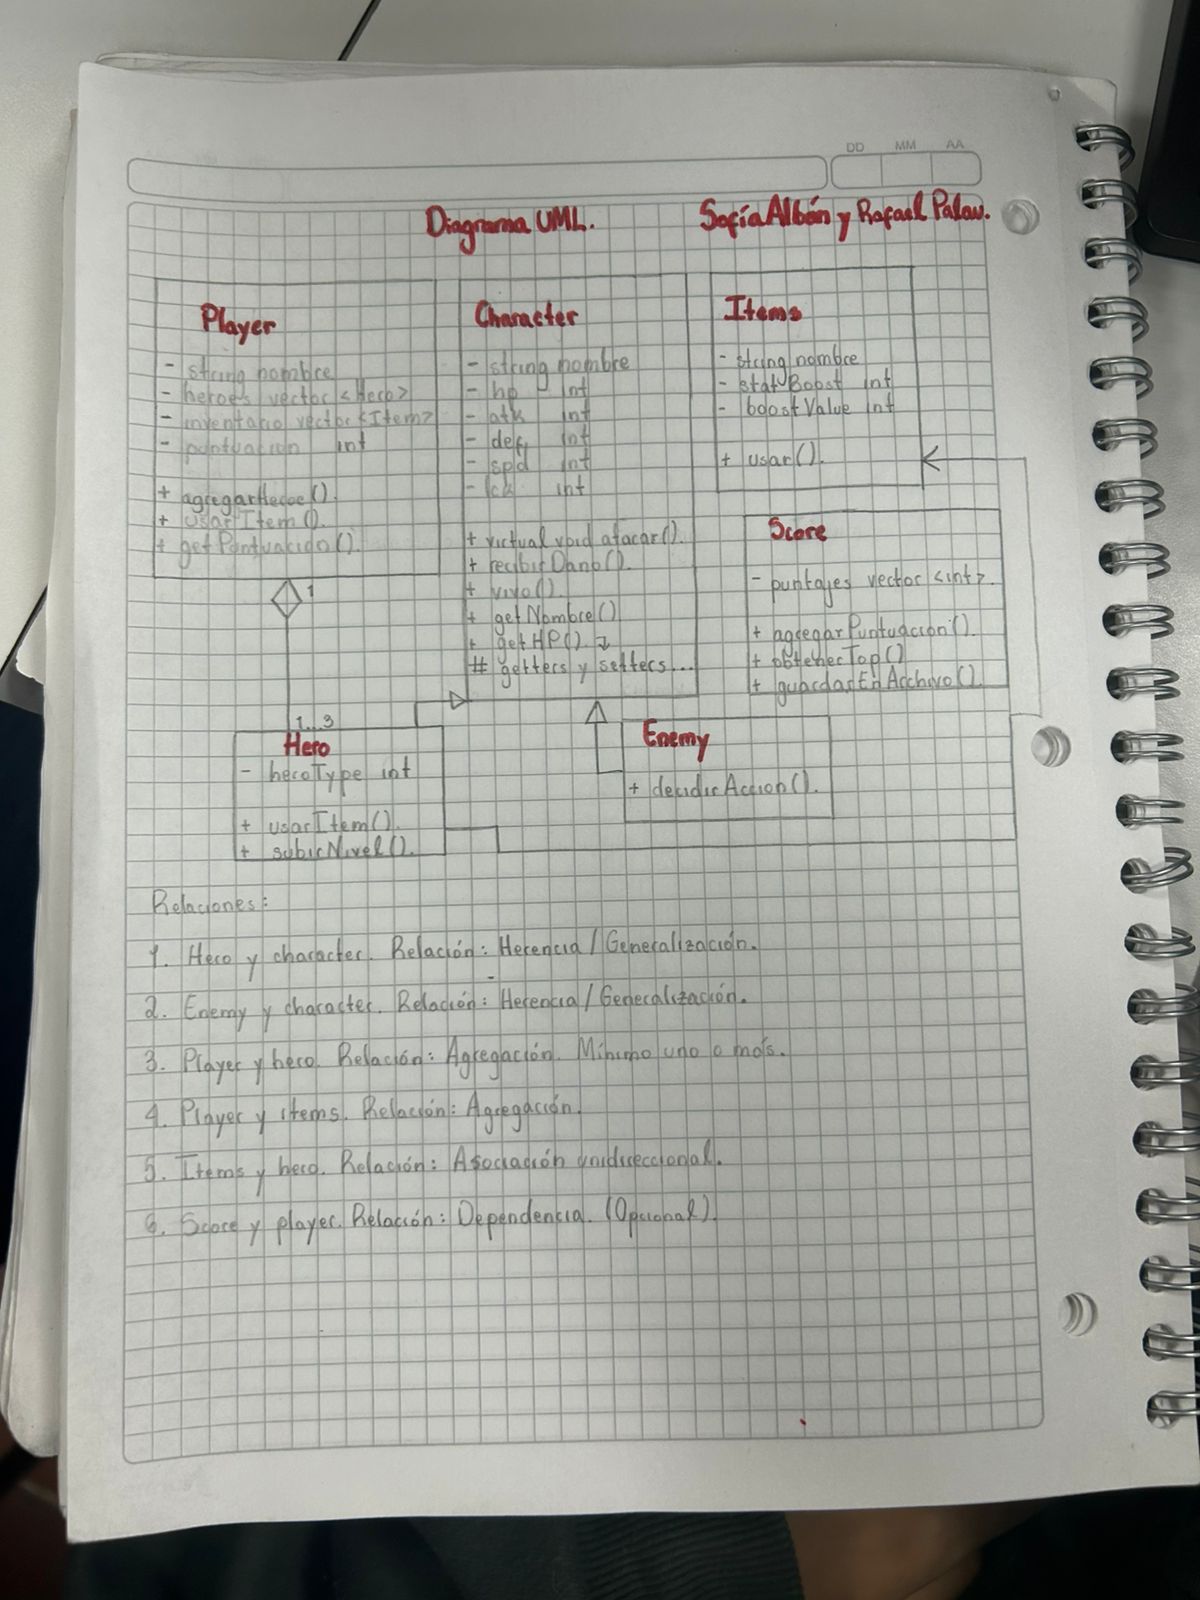 DD MM AA
Diagrama UML.
Sofía Albán y Rafael Palau.
Player
- string nombre
- heroes vector <Hero>
- inventario vector <Item>
- puntuacion int
+ agregarHeroe().
+ usarItem().
+ getPuntuacion().
1
Character
- string nombre
- hp int
- atk int
- def int
- spd int
- lck int
+ virtual void atacar().
+ recibirDano().
+ vivo().
+ getNombre()
+ getHP().
# getters y setters...
Items
- string nombre
- statBoost int
- boostValue int
+ usar().
Score
- puntajes vector <int>.
+ agregarPuntuacion().
+ obtenerTop()
+ guardarEnArchivo().
1...3
Hero
- heroType int
+ usarItem().
+ subirNivel().
Enemy
+ decidirAccion().
Relaciones:
1. Hero y character. Relación: Herencia / Generalización.
2. Enemy y character. Relación: Herencia / Generalización.
3. Player y hero. Relación: Agregación. Mínimo uno o más.
4. Player y items. Relación: Agregación.
5. Items y hero. Relación: Asociación unidireccional.
6. Score y player. Relación: Dependencia. (Opcional).